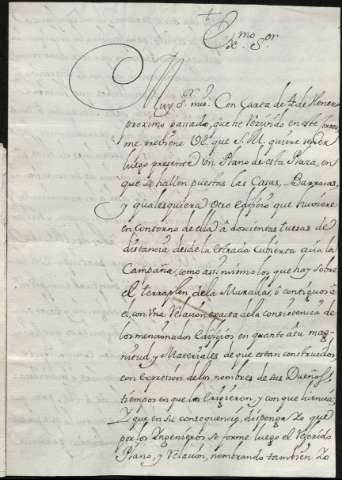 Ex.mo S.or
Muy S.r mio. Con Carta de 4 de Henero
proximo passado, que he recivido en este
me previene VE. que S.M. quiere se den
luego presente un Plano de esta Plaza, en
que se hallen puestas las Casas, Barracas,
y qualesquiera otro edifizio que huviere
en Contorno de ella â doscientas tuesas de
distancia desde la Estrada Cubierta azia la
Campaña, como assi mismo los que hay sobre
el terraplen de la Muralla, ô contiguos â
el, con Una Relazion exacta dela consistencia de
los mencionados Edifizios en quanto âsu mag-
nitud y Materiales de que estan construidos
con expresion delos nombres de sus Dueños,
tiempos en que los erigieron, y con que licencia;
Y que en su consequencia, disponga Yo que
por los Ingenieros se forme luego el Referido
Plano, y Relazion, nombrando tambien Yo